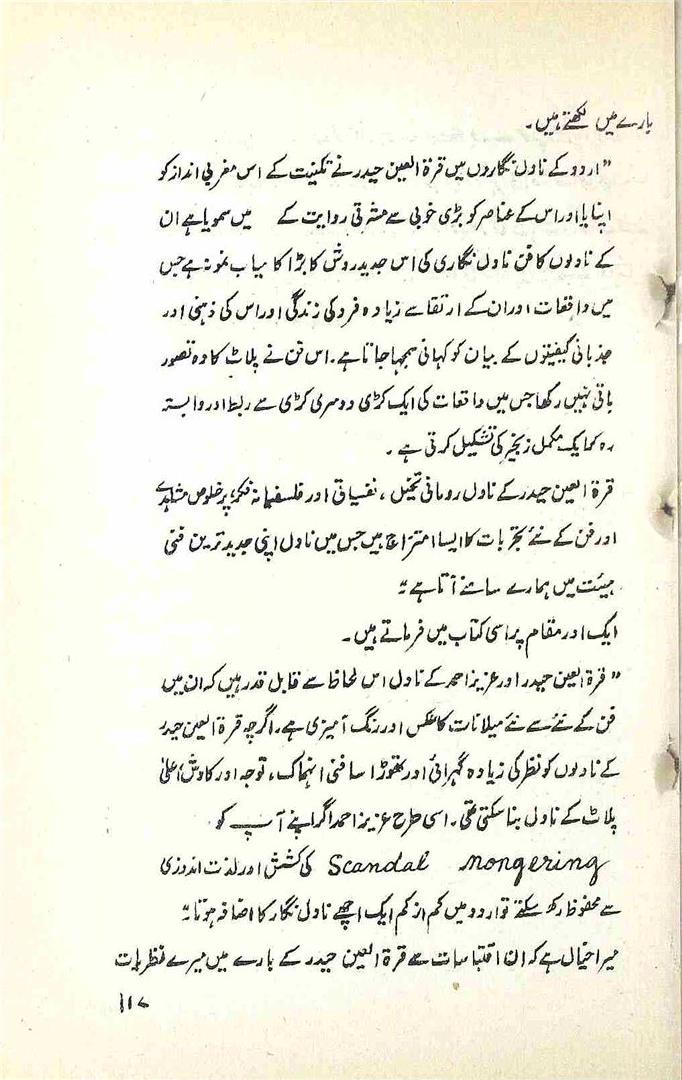 بارے میں لکھتے ہیں۔
”اردو کے ناول نگاروں میں قرۃ العین حیدر نے تکنیت کے اس مغربی انداز کو
اپنایا اور اس کے عناصر کو بڑی خوبی سے مشرقی روایت کے میں سمویا ہے ان
کے ناولوں کا فن ناول نگاری کی اس جدید روش کا بڑا کامیاب نمونہ ہے جس
میں واقعات اور ان کے ارتقا سے زیادہ فرد کی زندگی اور اس کی ذہنی اور
جذباتی کیفیتوں کے بیان کو کہانی سمجھا جاتا ہے۔ اس فن نے پلاٹ کا وہ تصور
باقی نہیں رکھا جس میں واقعات کی ایک کڑی دوسری کڑی سے ربط اور وابستہ
رہ کر ایک مکمل زنجیر کی تشکیل کرتی ہے۔
قرۃ العین حیدر کے ناول رومانی تخیل، نفسیاتی اور فلسفیانہ فکر، پر خلوص مشاہدے
اور فن کے نئے تجربات کا ایسا امتزاج ہیں جس میں ناول اپنی جدید ترین فنی
ہیئت میں ہمارے سامنے آتا ہے“
ایک اور مقام پر اسی کتاب میں فرماتے ہیں۔
”قرۃ العین حیدر اور عزیز احمد کے ناول اس لحاظ سے قابل قدر ہیں کہ ان میں
فن کے نئے سے نئے میلانات کا عکس اور رنگ آمیزی ہے۔ اگرچہ قرۃ العین حیدر
کے ناولوں کو نظر کی زیادہ گہرائی اور تھوڑا سا فنی انہماک، توجہ اور کاوش اعلیٰ
پلاٹ کے ناول بنا سکتی تھی۔ اسی طرح عزیز احمد اگر اپنے آپ کو
Scandal mongering کی کشش اور لذت اندوزی
سے محفوظ رکھ سکتے تو اردو میں کم از کم ایک اچھے ناول نگار کا اضافہ ہوتا“
میرا خیال ہے کہ ان اقتباسات سے قرۃ العین حیدر کے بارے میں میرے نظریات
۱۱۷